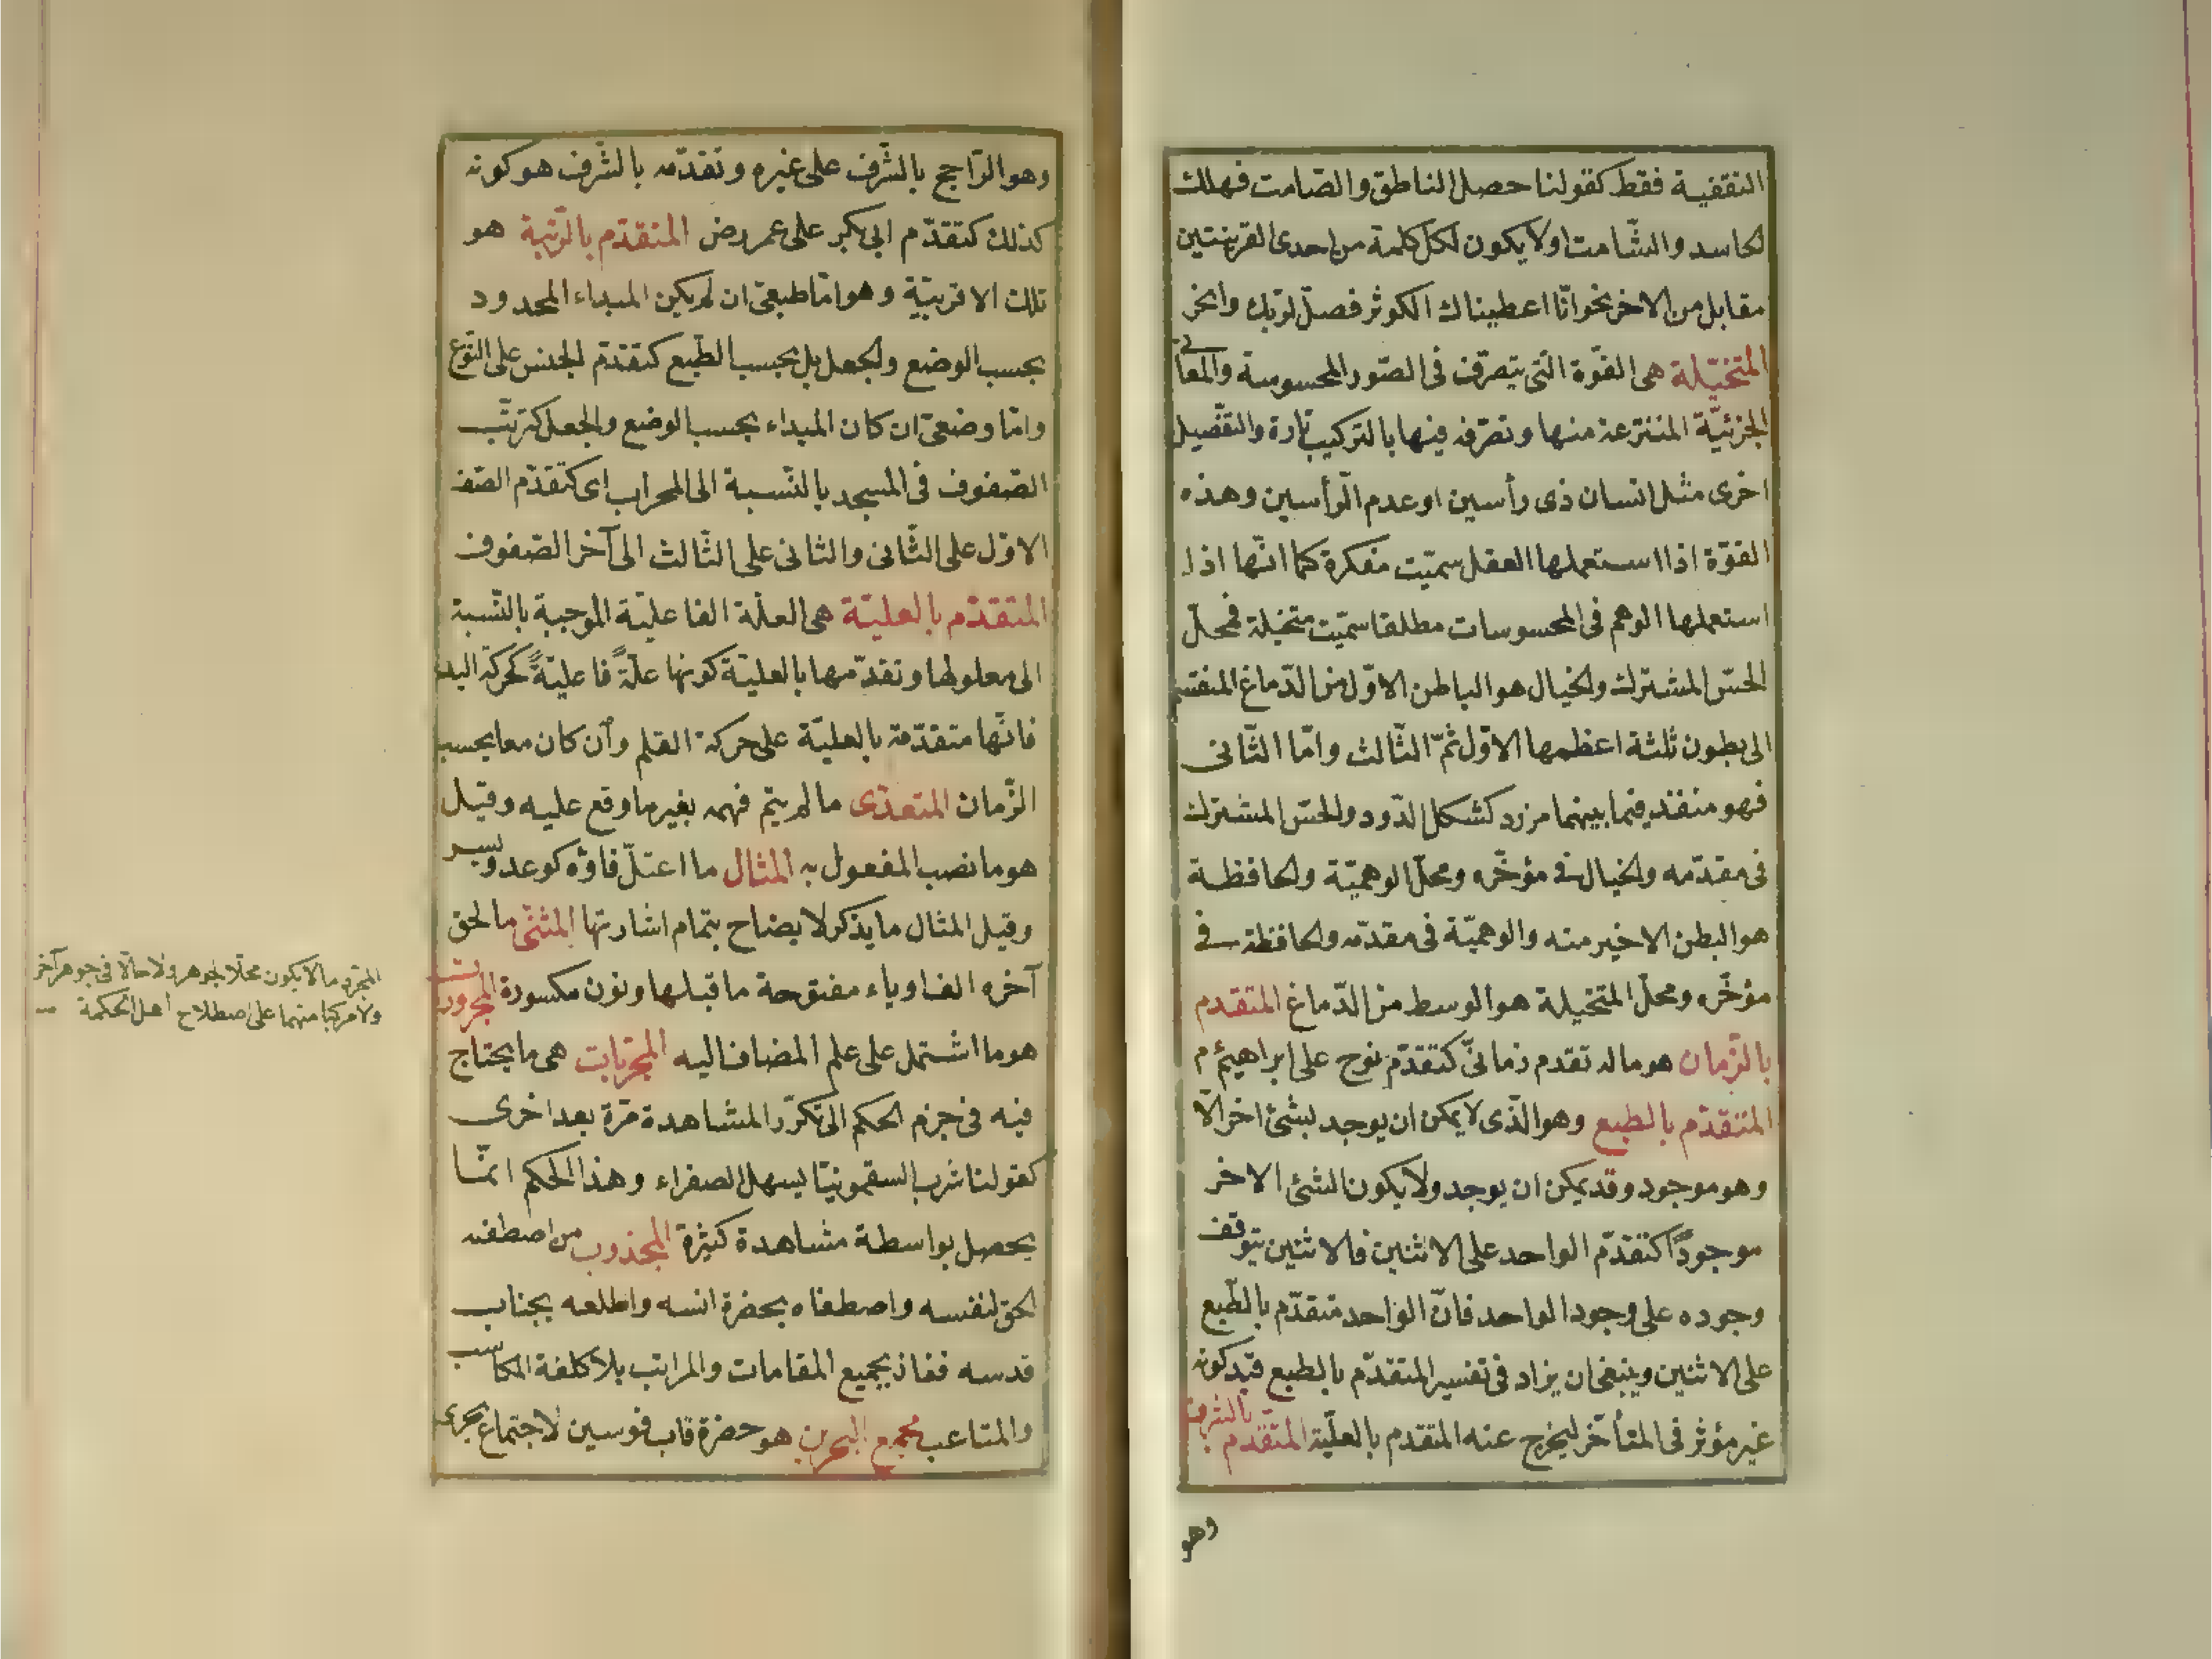 التقفية فقط كقولنا حصل الناطق والصامت فهلك
الحاسد والشّامت اولا يكون لكل كلمة من احدى القرينتين
مقابل من الاخر نحو انّا اعطيناك الكوثر فصلّ لربّك وانحر
المتخيّلة هى القوّة الّتى يتصرّف فى الصّور المحسوسة والمعانى
الجزئيّة المنتزعة منها وتصرّفه فيها بالتركيب تارة والتّفصيل
اخرى مثل انسان ذى رأسين او عدم الرّأسين وهذه
القوّة اذا استعملها العقل سمّيت مفكرة كما انّها اذا
استعملها الوهم فى المحسوسات مطلقا سمّيت متخيلة فمحلّ
الحسّ المشترك والخيال هو الباطن الاوّل من الدّماغ المنقسم
الى بطون ثلثة اعظمها الاوّل ثمّ الثّالث وامّا الثّانى
فهو منفذ فيما بينهما مزرد كشكل الدّود والحسّ المشترك
فى مقدّمه والخيال فى مؤخّره ومحلّ الوهميّة والحافظة
هو البطن الاخير منه والوهميّة فى مقدّمه والحافظة فى
مؤخّره ومحلّ المتخيلة هو الوسط من الدّماغ المتقدم
بالزّمان هو ماله تقدم زمانىّ كتقدّم نوح على ابراهيم ع م
المتقدّم بالطبع وهو الّذى لا يمكن ان يوجد لشئ اخر الّا
وهو موجود وقد يمكن ان يوجد ولا يكون الشئ الاخر
موجودًا كتقدّم الواحد على الاثنين فالاثنين يتوقف
وجوده على وجود الواحد فانّ الواحد متقدّم بالطّبع
على الاثنين وينبغى ان يزاد فى تفسير المتقدّم بالطبع قيد كونه
غير مؤثر فى المتأخّر ليخرج عنه المتقدم بالعلّيّة المتقدم بالشرف
وهو
وهو الرّاجح بالشّرف على غيره وتقدّمه بالشّرف هو كونه
كذلك كتقدّم ابى بكر على عمر رض المتقدّم بالرّتبة هو
تلك الاقربيّة وهو امّا طبعىّ ان لم يكن المبداء المحدود
بحسب الوضع والجعل بل بحسب الطّبع كتقدّم الجنس على النّوع
وامّا وضعىّ ان كان المبداء بحسب الوضع والجعل كترتّب
الصّفوف فى المسجد بالنّسبة الى المحراب اى كتقدّم الصّف
الاوّل على الثّانى والثانى على الثّالث الى آخر الصّفوف
المتقدّم بالعليّة هى العلّة الفاعليّة الموجبة بالنّسبة
الى معلولها وتقدّمها بالعليّة كونها علّةً فاعليّةً كحركة اليد
فانّها متقدّمة بالعليّة على حركة القلم وان كان معا بحسب
الزّمان المتعدّى ما لم يتم فهمه بغير ما وقع عليه وقيل
هو ما نصب المفعول به المثال ما اعتلّ فاؤه كوعد ويسر
وقيل المثال ما يذكر لايضاح بتمام اشارتها المثنّى ما لحق
آخره الف او ياء مفتوحة ما قبلها ونون مكسورة المجرورات
هو ما اشتمل على علم المضاف اليه المجرّبات هى ما يحتاج
فيه فى جزم الحكم الى تكرّر المشاهدة مرّة بعد اخرى
كقولنا شرب السقمونيّا يسهل الصفراء وهذا الحكم انّما
يحصل بواسطة مشاهدة كثيرة المجذوب من اصطفته
الحق لنفسه واصطفاه بحضرة انسه واطلعه بجناب
قدسه ففاز بجميع المقامات والمراتب بلا كلفة المكاسب
والمتاعب مجمع البحرين هو حضرة قاب قوسين لاجتماع بحرى
المجرّد ما لا يكون محلّا لجوهر ولا حالّا فى جوهر آخر
ولا مركبا منهما على اصطلاح اهل الحكمة